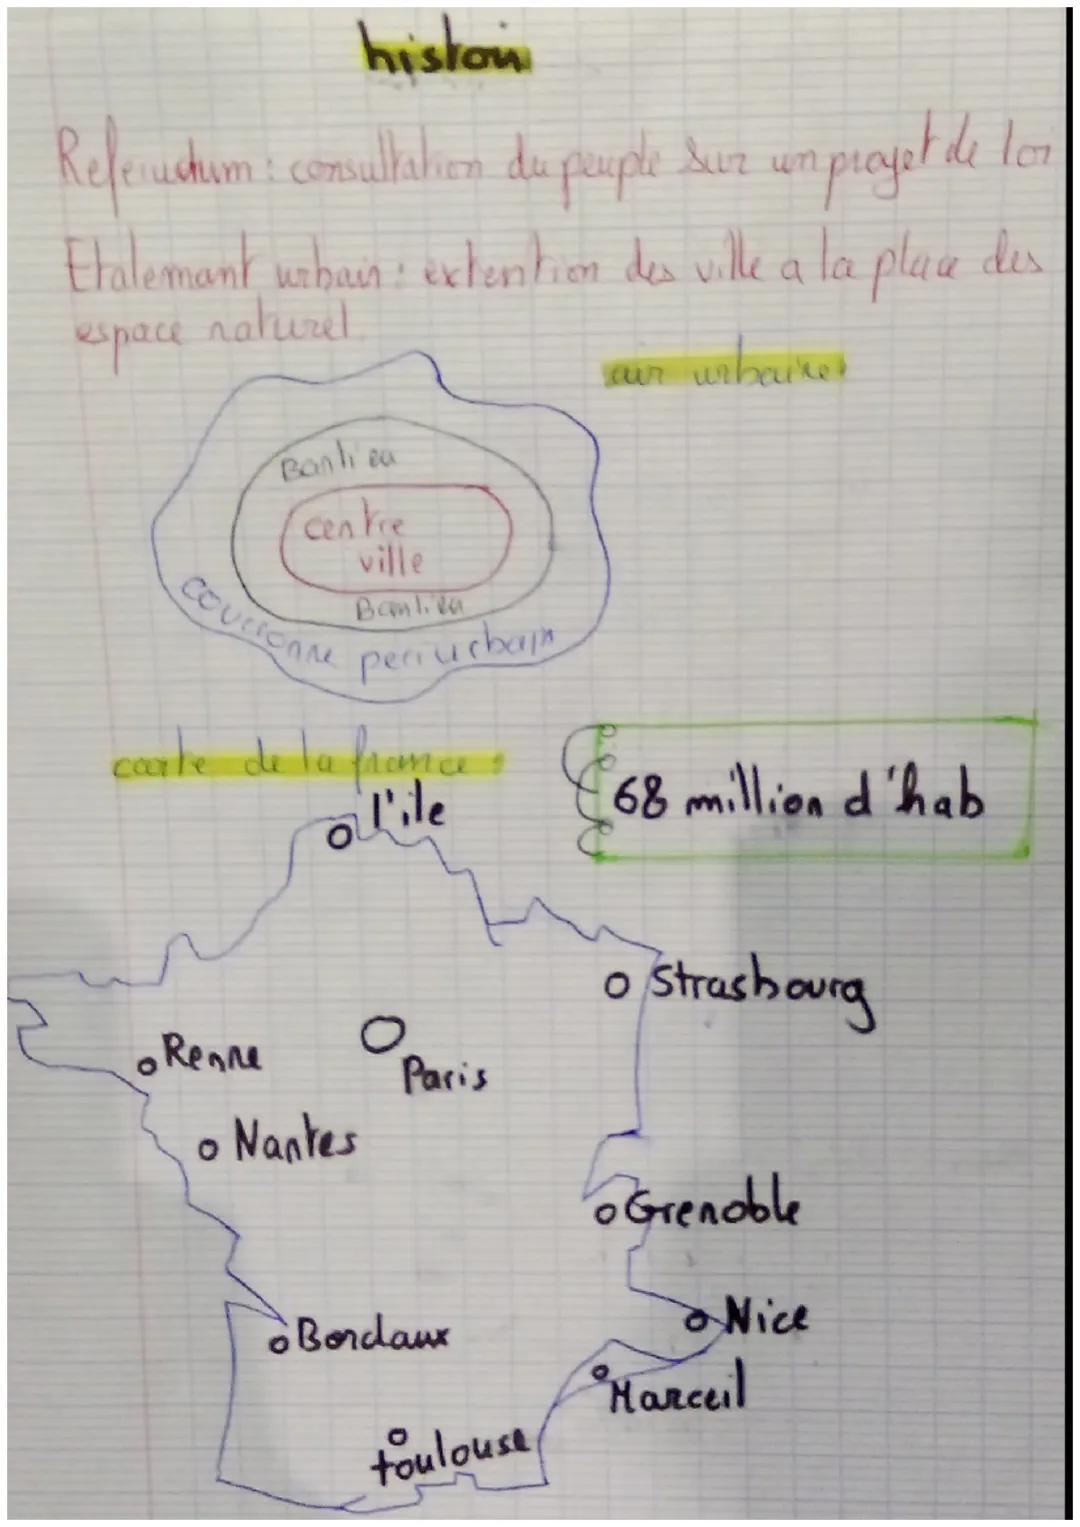 histoir
Referundum : consultation du peuple sur un projet de loi
Etalemant urbain : extention des ville a la place des
espace naturel
air urbaine :
Banlieu
centre
ville
Banlieu
couronne periurbain
carte de la france :
68 million d'hab
l'ile
Strasbourg
Renne
Paris
Nantes
Grenoble
Nice
Bordaux
Marceil
toulouse